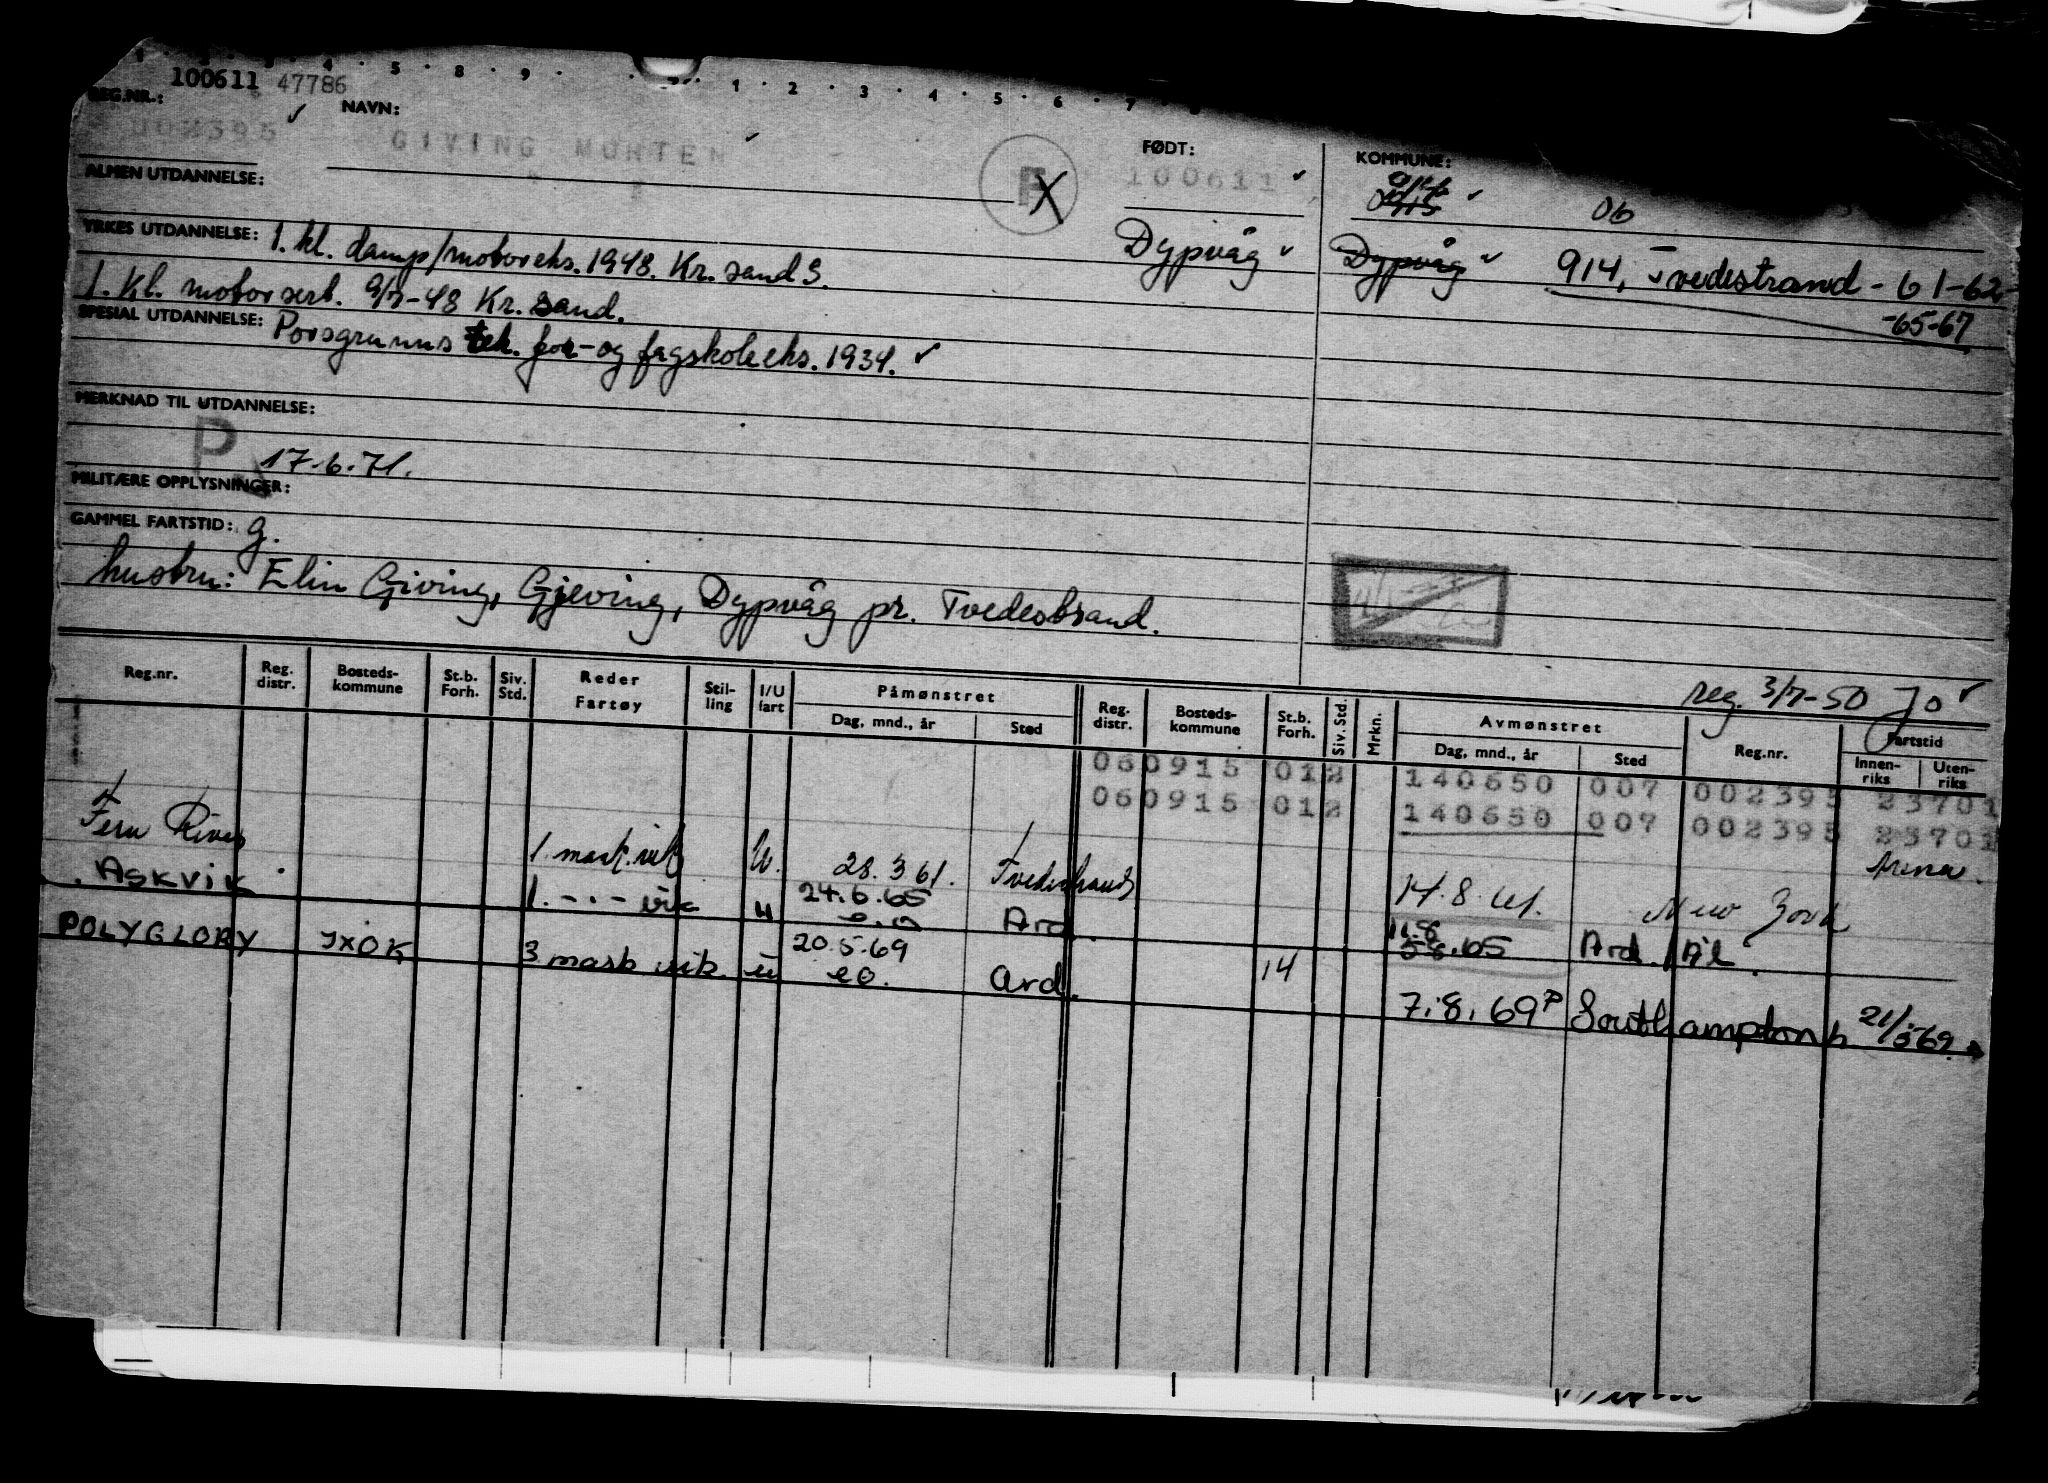 100611 47786
REG.NR.: NAVN: FØDT: KOMMUNE:
002395 GIVING MORTEN 100611
ALMEN UTDANNELSE: 06
YRKES UTDANNELSE: 1. kl. damp/motoreks. 1948. Kr.sand S. Dypvåg Dypvåg 914, Tvedestrand - 61-62-
1. Kl. motorsert. 9/7-48 Kr. sand. -65-67
SPESIAL UTDANNELSE: Porsgrunns tek. for- og fagskoleeks. 1934.
MERKNAD TIL UTDANNELSE:
P 17-6-71.
MILITÆRE OPPLYSNINGER:
GAMMEL FARTSTID: g.
hustru: Elin Giving, Gjeving, Dypvåg pr. Tvedestrand.
reg. 3/7-50 Jo
Reg.nr. Reg. distr. Bosteds-kommune St.b. Forh. Siv. Std. Reder Fartøy Stil-ling I/U fart Påmønstret Dag, mnd., år Sted Reg. distr. Bosteds-kommune St.b. Forh. Siv. Std. Mrkn. Avmønstret Dag, mnd., år Sted Reg.nr. Fartstid Innen-riks Uten-riks
060915 012 140650 007 002395 23701
060915 012 140650 007 002395 23701
Fern River 1. mask. vikt U. 28.3 61. Tvedestrand 14.8.61. New York
ASKVIK 1. -"- vik U 24.6.65 e.o Ard. 11.8 58.65 Ard. / Ål.
POLYGLORY JXOK 3 mask vik. u 20.5.69 eo. Ard. 14 7.8.69 P Southampton h 21/5-69.